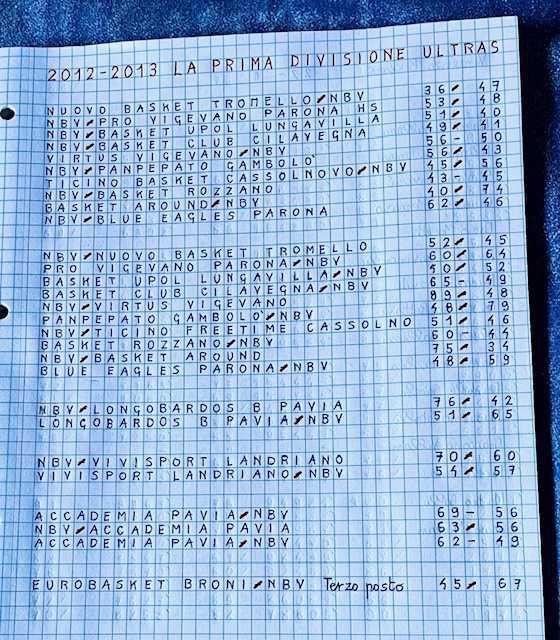 2012-2013 LA PRIMA DIVISIONE ULTRAS
NUOVO BASKET TROMELLO-NBV 36-47
NBV-PRO VIGEVANO PARONA HS 53-48
NBV-BASKET UPOL LUNGAVILLA 51-40
NBV-BASKET CLUB CILAVEGNA 49-41
VIRTUS VIGEVANO-NBV 56-50
NBV-PANPEPATO GAMBOLO' 56-43
TICINO BASKET CASSOLNOVO-NBV 45-56
NBV-BASKET ROZZANO 43-45
BASKET AROUND-NBV 40-74
NBV-BLUE EAGLES PARONA 62-46
NBV-NUOVO BASKET TROMELLO 52-45
PRO VIGEVANO PARONA-NBV 60-64
BASKET UPOL LUNGAVILLA-NBV 40-52
BASKET CLUB CILAVEGNA-NBV 65-49
NBV-VIRTUS VIGEVANO 89-48
PANPEPATO GAMBOLO'-NBV 48-79
NBV-TICINO FREETIME CASSOLNO 51-46
BASKET ROZZANO-NBV 60-44
NBV-BASKET AROUND 75-34
BLUE EAGLES PARONA-NBV 48-59
NBV-LONGOBARDOS B PAVIA 76-42
LONGOBARDOS B PAVIA-NBV 51-65
NBV-VIVISPORT LANDRIANO 70-60
VIVISPORT LANDRIANO-NBV 54-57
ACCADEMIA PAVIA-NBV 69-56
NBV-ACCADEMIA PAVIA 63-56
ACCADEMIA PAVIA-NBV 62-49
EUROBASKET BRONI-NBV Terzo posto 45-67